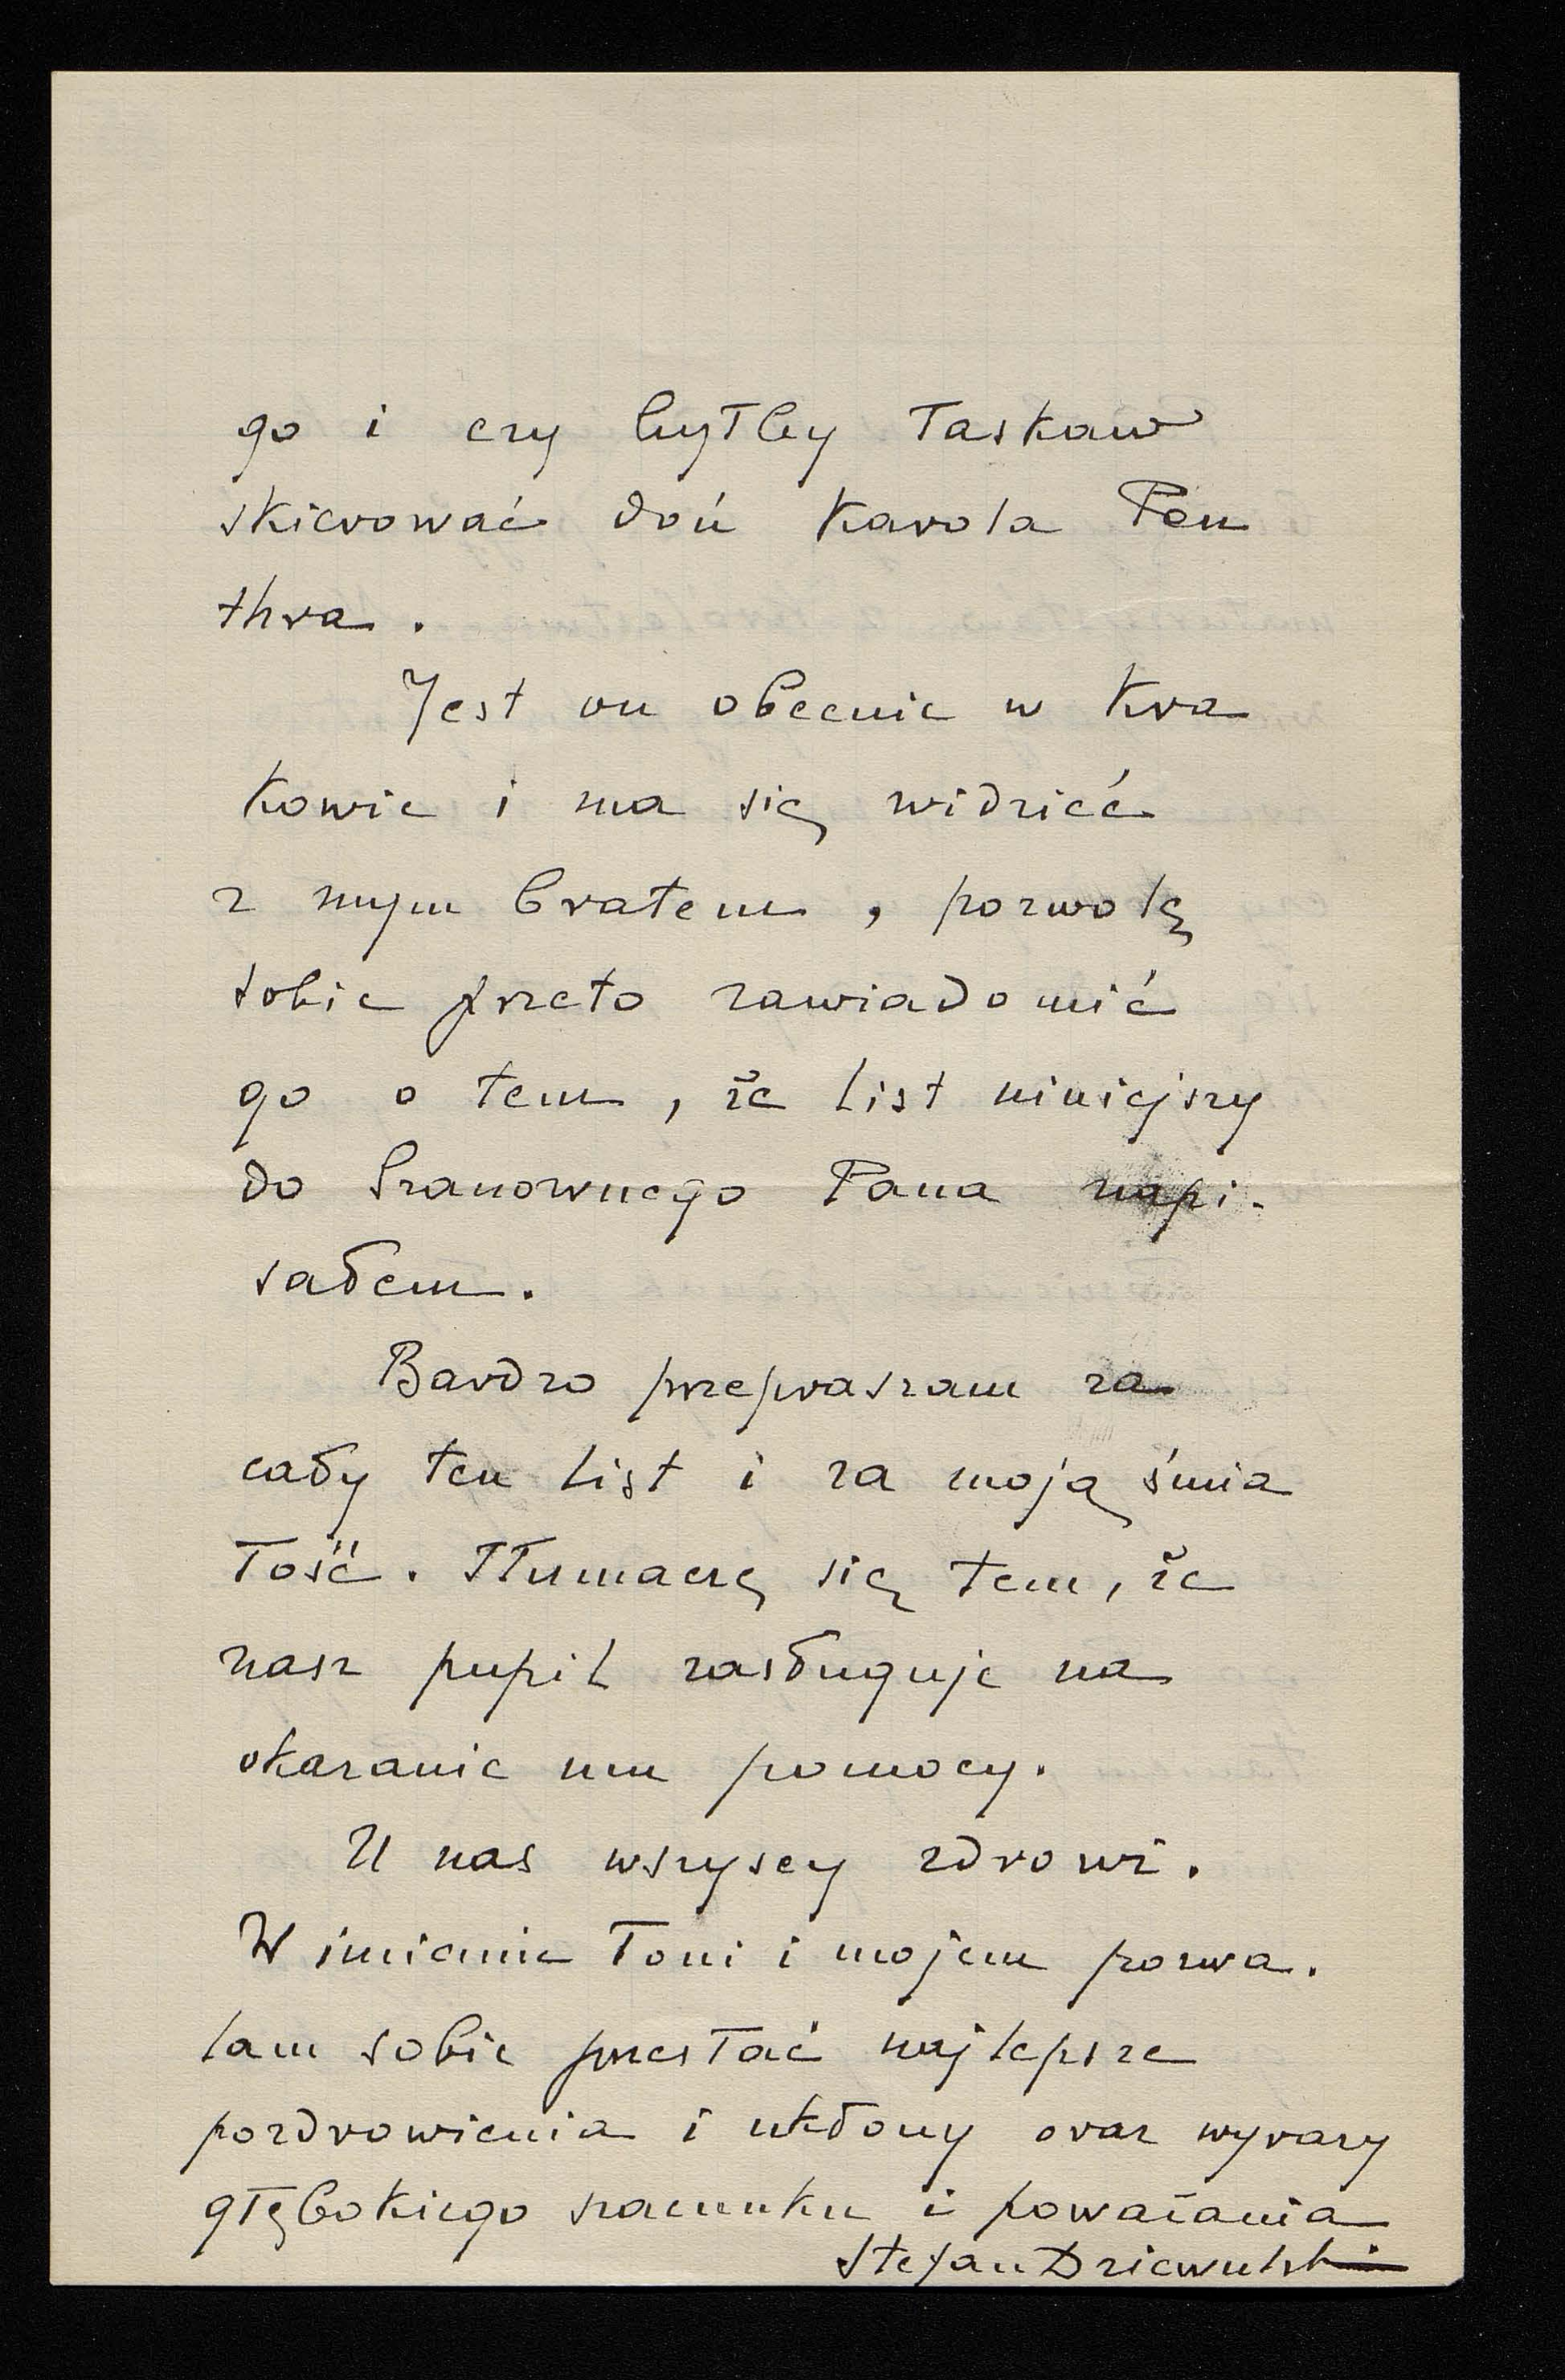 go i czy byłby łaskaw
skierować doń Karola Pen
thra.
Jest on obecnie w Kra
kowie i ma się widzieć
z mym bratem, pozwolę
sobie przeto zawiadomić
go o tem, że list niniejszy
do Szanownego Pana napi-
sałem.
Bardzo przepraszam za
cały ten list i za moją śmia
łość. Tłumaczę się tem, że
nasz pupil zasługuje na
okazanie mu pomocy.
U nas wszyscy zdrowi.
W imieniu Toni i mojem pozwa-
lam sobie przesłać najlepsze
pozdrowienia i ukłony oraz wyrazy
głębokiego szacunku i poważania
Stefan Dziewulski